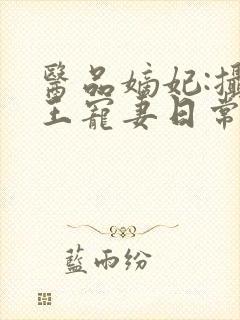 醫品嫡妃:攝
王寵妻日常
藍雨紛